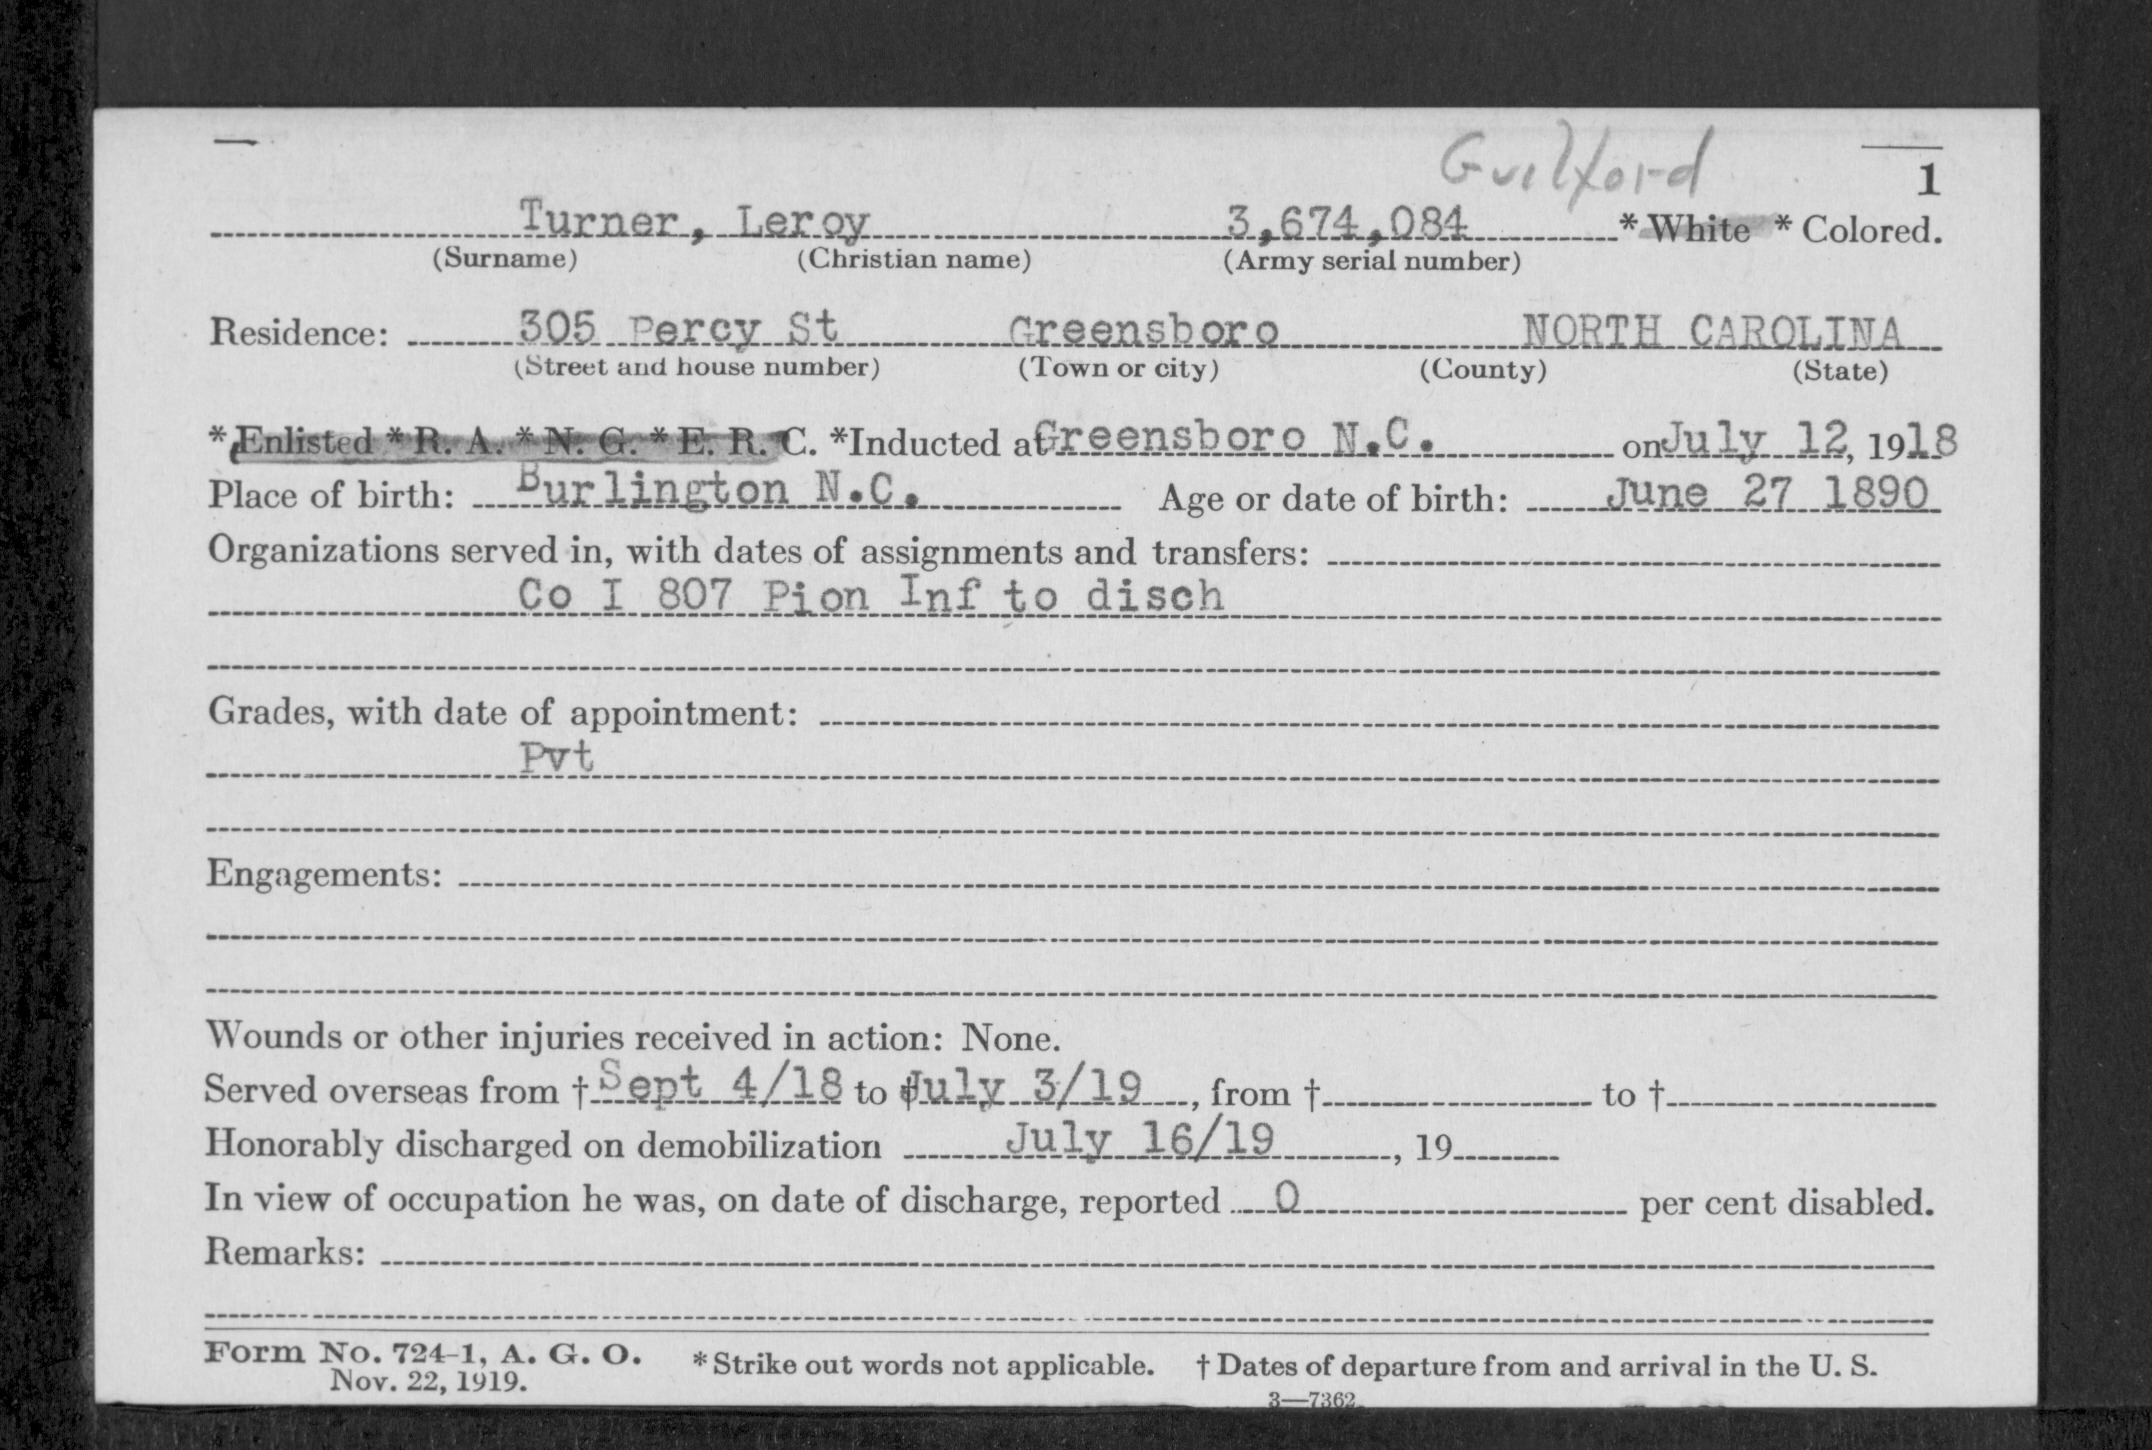 Guilford
1
Turner, Leroy 3,674,084 * White * Colored.
(Surname) (Christian name) (Army serial number)
Residence: 305 Percy St Greensboro NORTH CAROLINA
(Street and house number) (Town or city) (County) (State)
* Enlisted * R. A. * N. G. * E. R. C. *Inducted at Greensboro N.C. on July 12, 1918
Place of birth: Burlington N.C. Age or date of birth: June 27 1890
Organizations served in, with dates of assignments and transfers:
Co I 807 Pion Inf to disch
Grades, with date of appointment:
Pvt
Engagements:
Wounds or other injuries received in action: None.
Served overseas from † Sept 4/18 to † July 3/19, from † to †
Honorably discharged on demobilization July 16/19, 19
In view of occupation he was, on date of discharge, reported 0 per cent disabled.
Remarks:
Form No. 724-1, A. G. O. * Strike out words not applicable. † Dates of departure from and arrival in the U. S.
Nov. 22, 1919.
3—7362